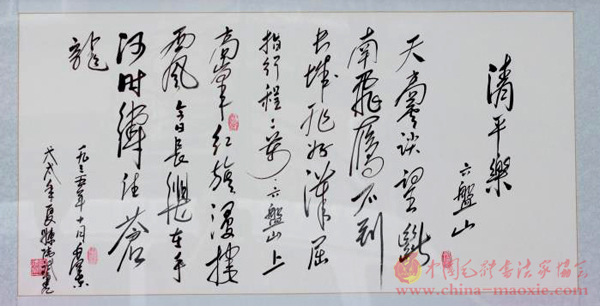 清平樂
六盤山
天高雲淡望斷
南飛雁不到
长城非好漢屈
指行程二萬六盤山上
高峰红旗漫捲
西風今日長纓在手
何时縛住蒼
龍
一九三五年十月毛澤東
戊戌年夏
中国毛体书法家协会
www.china-maoxie.com